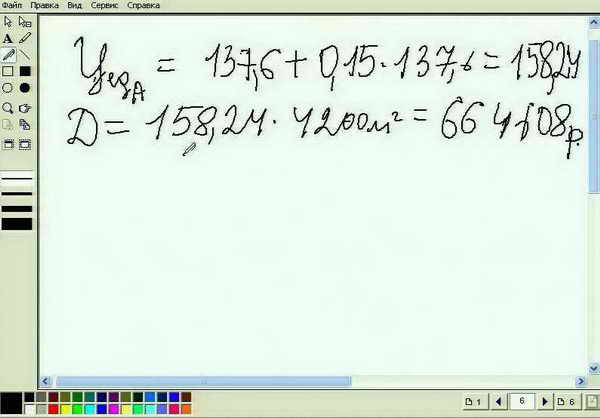 Файл Правка Вид Сервис Справка
Ц_ед_А = 137,6 + 0,15 · 137,6 = 158,24
D = 158,24 · 4200 м² = 664608 р.
A
1 6 6